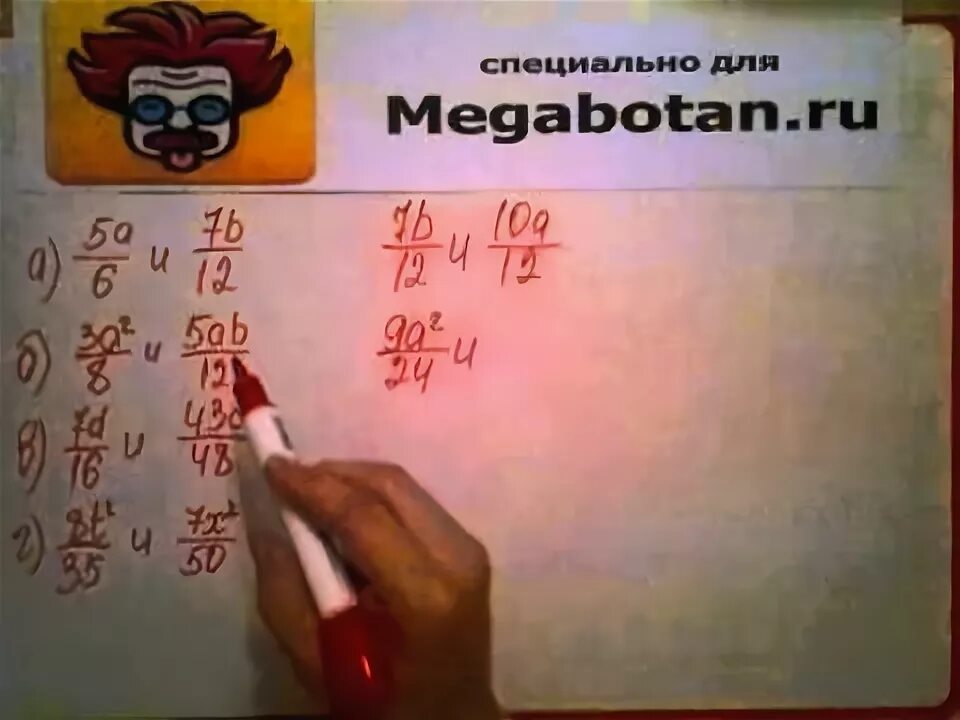 специально для
Megabotan.ru
а) 5a/6 и 7b/12 7b/12 и 10a/12
б) 3a²/8 и 5ab/12 9a²/24 и
в) 7d/16 и 43c/48
г) 8t²/35 и 7x²/50